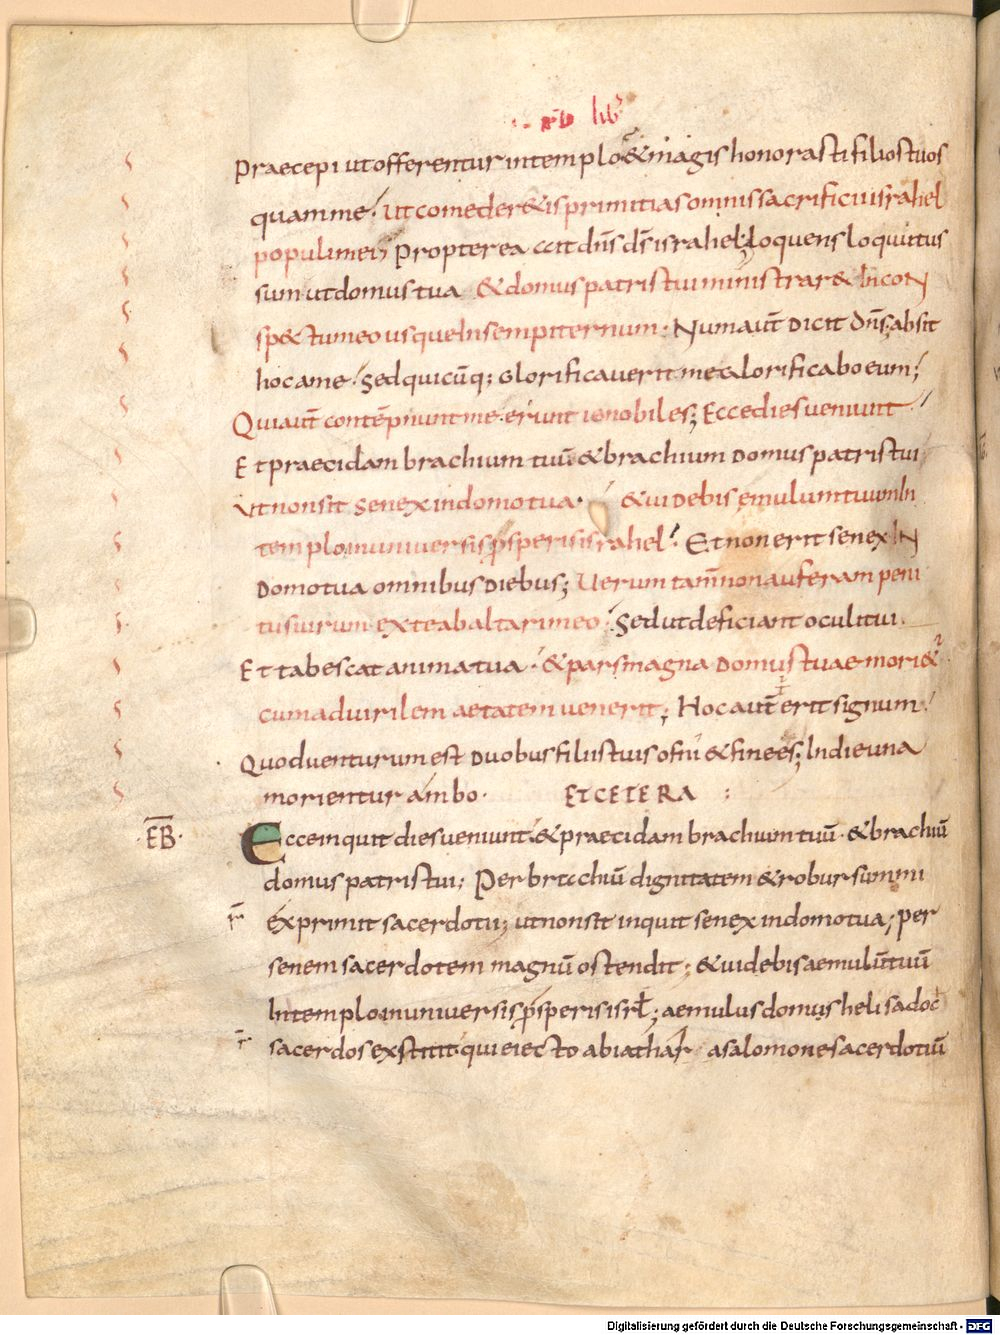 lib
Praecepi ut offerentur in templo & magis honorasti filios tuos
quam me. Ut comeder&is primitias omnis sacrificii israhel
populi mei; Propterea ait dn̄s ds̄ israhel; loquens loquutus
sum ut domus tua & domus patris tui ministrar& in con
sp&tu meo usque in sempiternum. Nunc aut̄ dicit dn̄s; absit
hoc a me. Sed quicūq; glorificaverit me glorificabo eum;
Qui aut̄ contēpnunt me. erunt ignobiles; Ecce dies veniunt
Et praecidam brachium tuū & brachium domus patris tui
Ut non sit senex in domo tua. & videbis emulum tuum in
templo in universis p̄speris israhel. Et non erit senex in
domo tua omnibus diebus; Verum tam̄ non auferam peni
tus virum ex te ab altari meo. Sed ut deficiant oculi tui.
Et tabescat anima tua. & pars magna domus tuae mori&ur
cum ad virilem aetatem venerit; Hoc aut̄ erit signum.
Quod venturum est duobus filiis tuis ofni & finees; In die una
morientur ambo. ETCETERA :
·EB· Ecce inquit dies veniunt. & praecidam brachium tuū. & brachiū
domus patris tui; Per bracchiū dignitatem & robur summi
exprimit sacerdotii; ut non sit inquit senex in domo tua; per
senem sacerdotem magnū ostendit; & videbis aemulū tuū
In templo in universis p̄speris isrł; aemulus domus heli sadoc
sacerdos exstitit. qui eiecto abiathar a salomone sacerdotiū
Digitalisierung gefördert durch die Deutsche Forschungsgemeinschaft - DFG